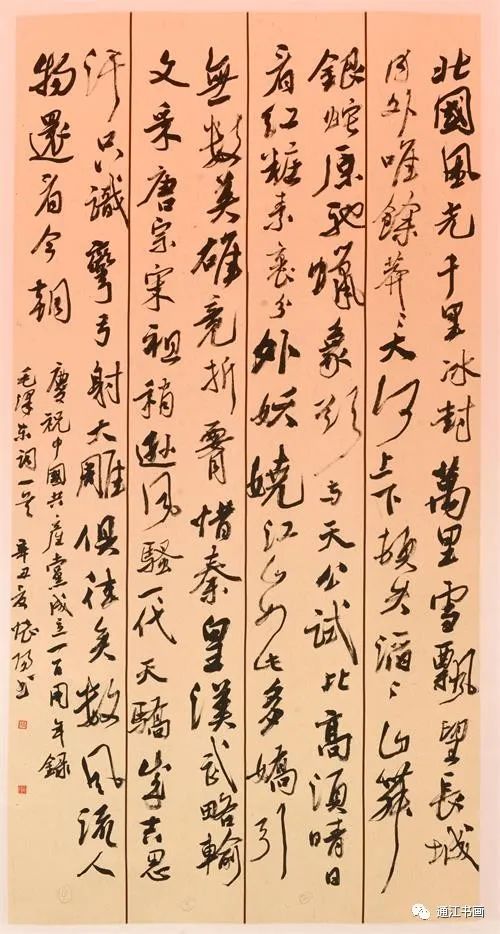 北國風光千里冰封萬里雪飄望長城
内外唯餘莽〻大河上下頓失滔〻山舞
銀蛇原馳蠟象欲与天公試比高須晴日
看紅糚素裹分外妖嬈江山如此多嬌引
無數英雄竟折腰惜秦皇漢武略輸
文采唐宗宋祖稍遜風騷一代天驕成吉思
汗只識彎弓射大雕俱往矣數風流人
物還看今朝
慶祝中國共産黨成立一百周年錄
毛澤東詞一首 辛丑夏
通江书画